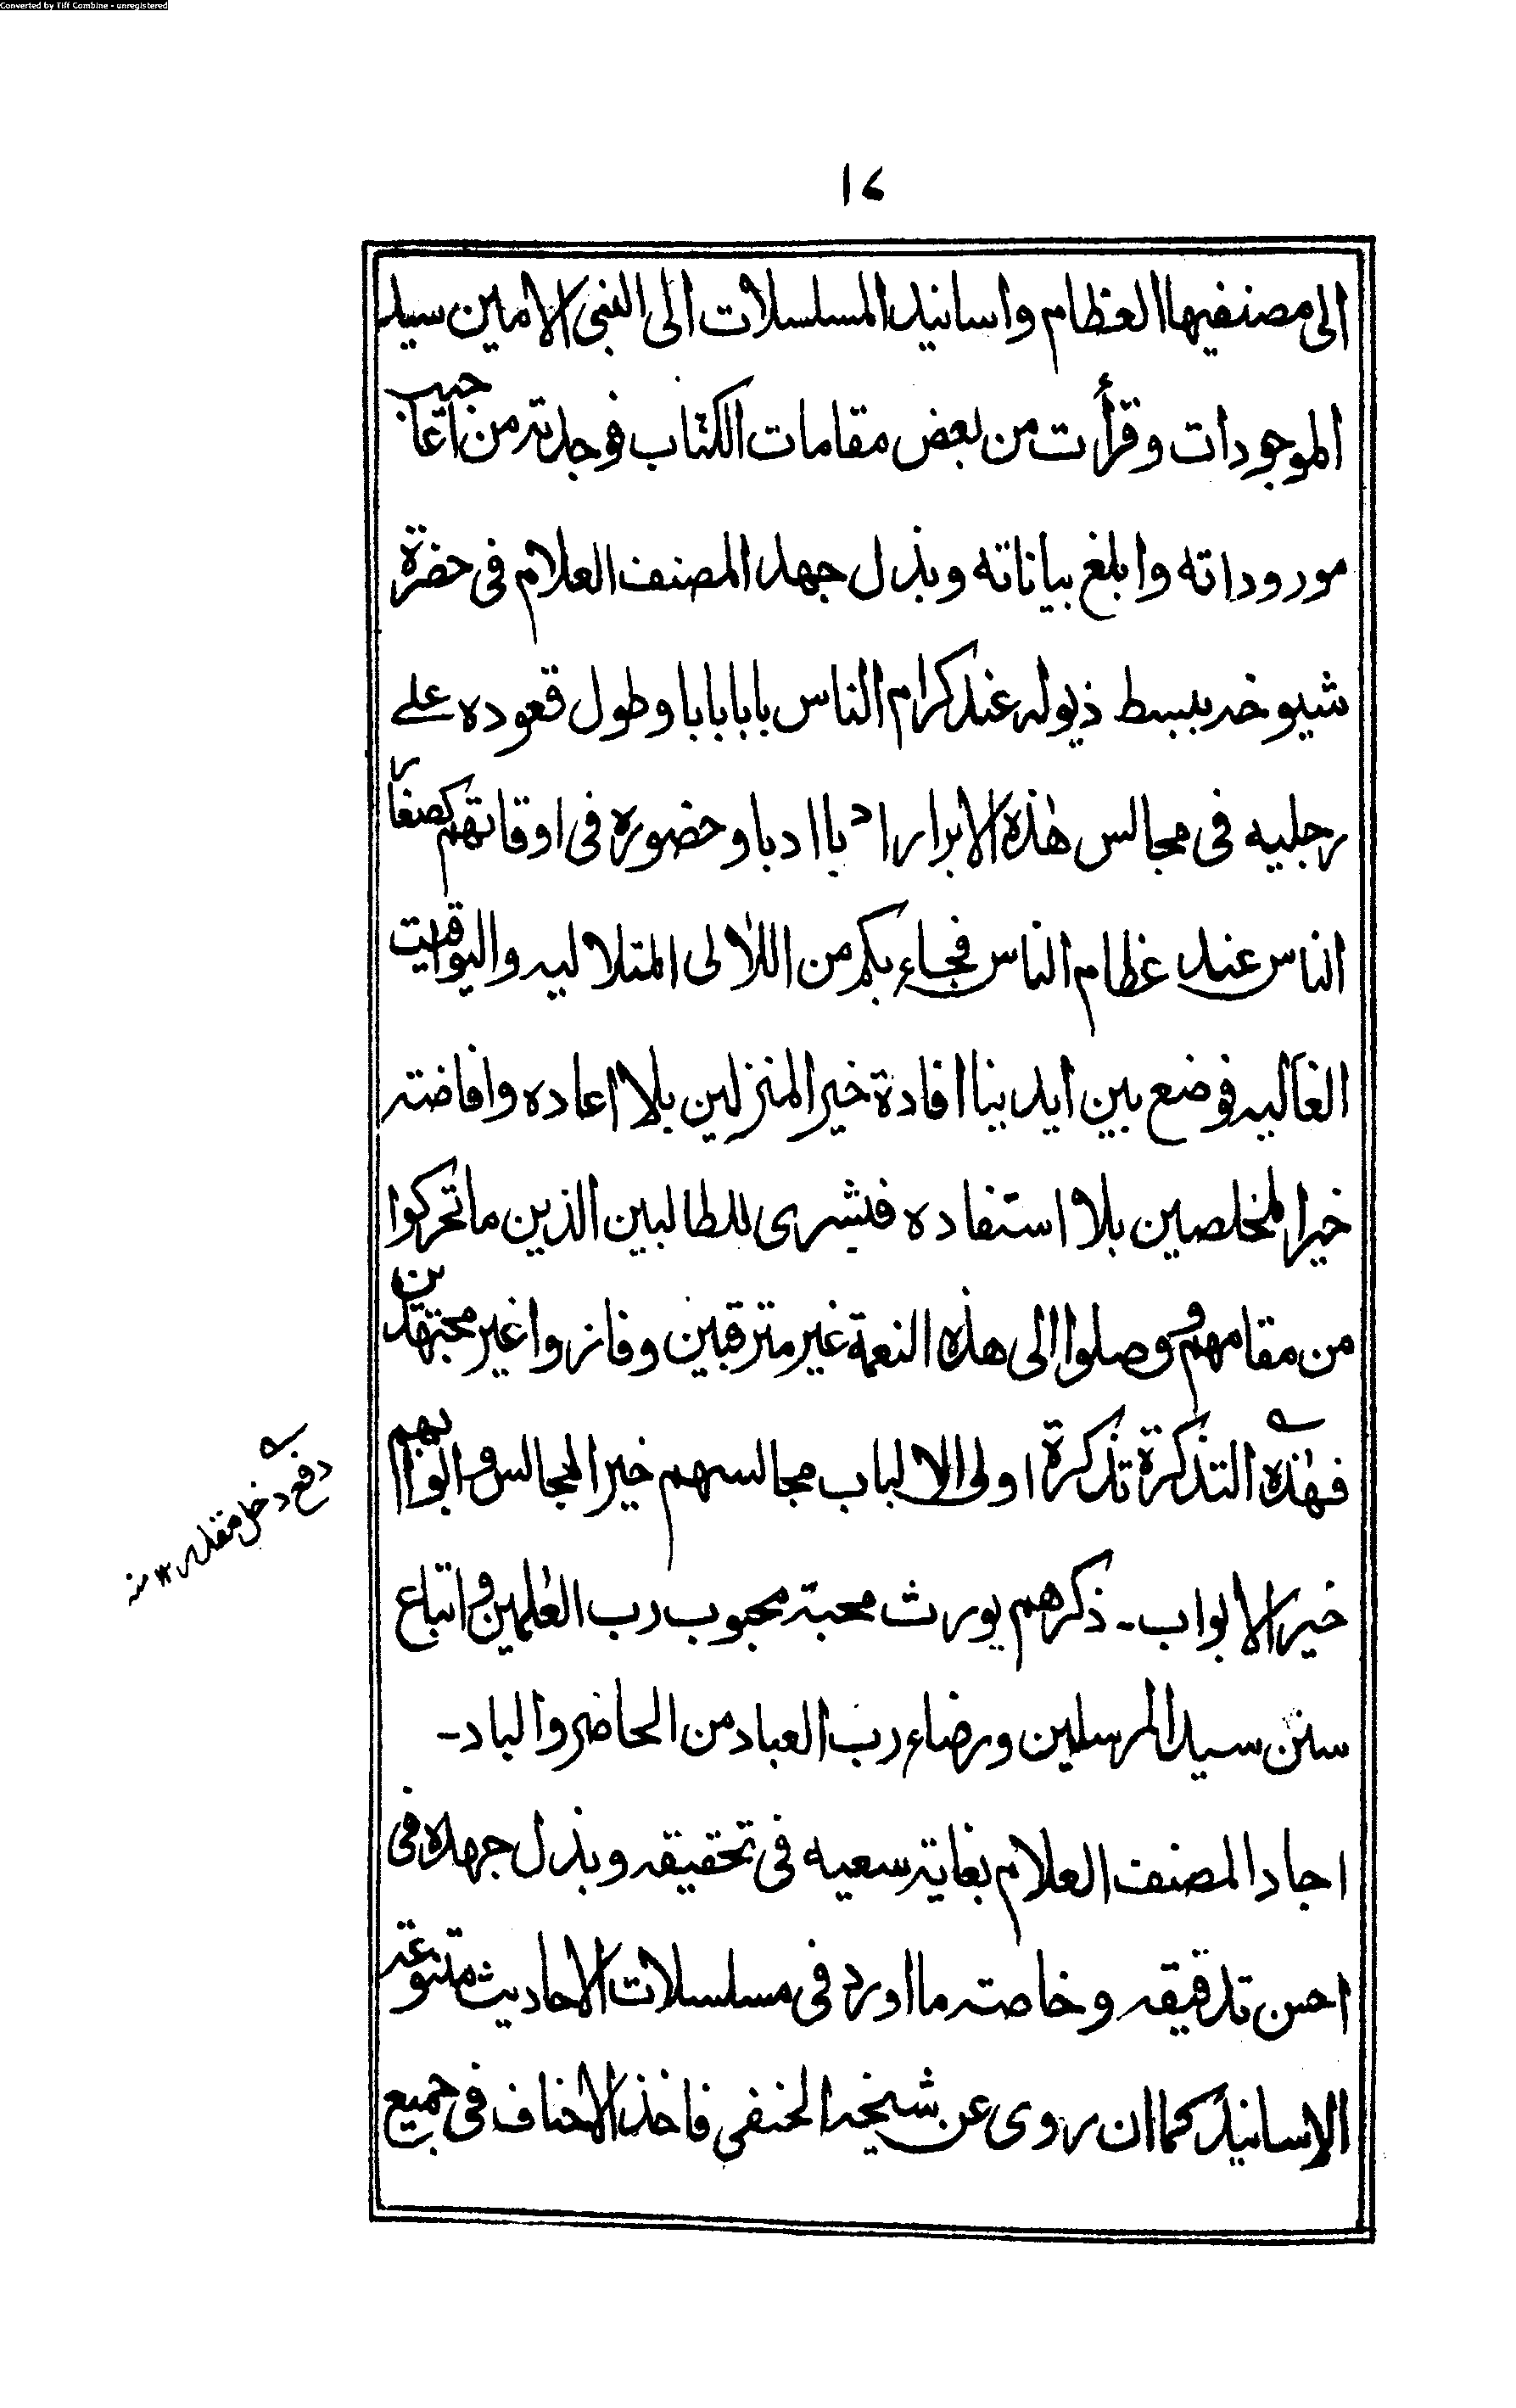 Converted by Tiff Combine - unregistered
۱۷
الى مصنفيها العظام واسانيد المسلسلات الى النبى الامين سيد
الموجودات وقرأت من بعض مقامات الكتاب فوجدته من اعاجيب
موروداته وابلغ بياناته وبذل جهد المصنف العلام فى حضرة
شيوخه ببسط ذيوله عند كرام الناس بابا بابا وطول قعوده على
رجليه فى مجالس هٰذه الابرار ادبا ادبا وحضوره فى اوقاتهم كصغار
الناس عند عظام الناس فجاء بكم من اللآلى المتلاليه واليواقيت
الغاليه فوضع بين ايدينا افادة خير المنزلين بلا اعاده وافاضته
خير المخلصين بلا استفاده فبشرى للطالبين الذين ما تحركوا
من مقامهم ووصلوا الى هذه النعمة غير مترقبين وفازوا غير مجتهدين
فهٰذه التذكرة تذكرة اولى الالباب مجالسهم خير المجالس وابوابهم
خير الابواب۔ ذكرهم يورث محبة محبوب رب العٰلمين واتباع
سنن سيد المرسلين ورضاء رب العباد من الحاضر والباد۔
اجاد المصنف العلام بغاية سعيه فى تحقيقه وبذل جهده فى
احسن تدقيقه وخاصته ما اورد فى مسلسلات الاحاديث متنوعة
الاسانيد كما ان روى عن شيخه الحنفى فاخذ الاحناف فى جميع
دفع دخل مقدر ١٢ منه